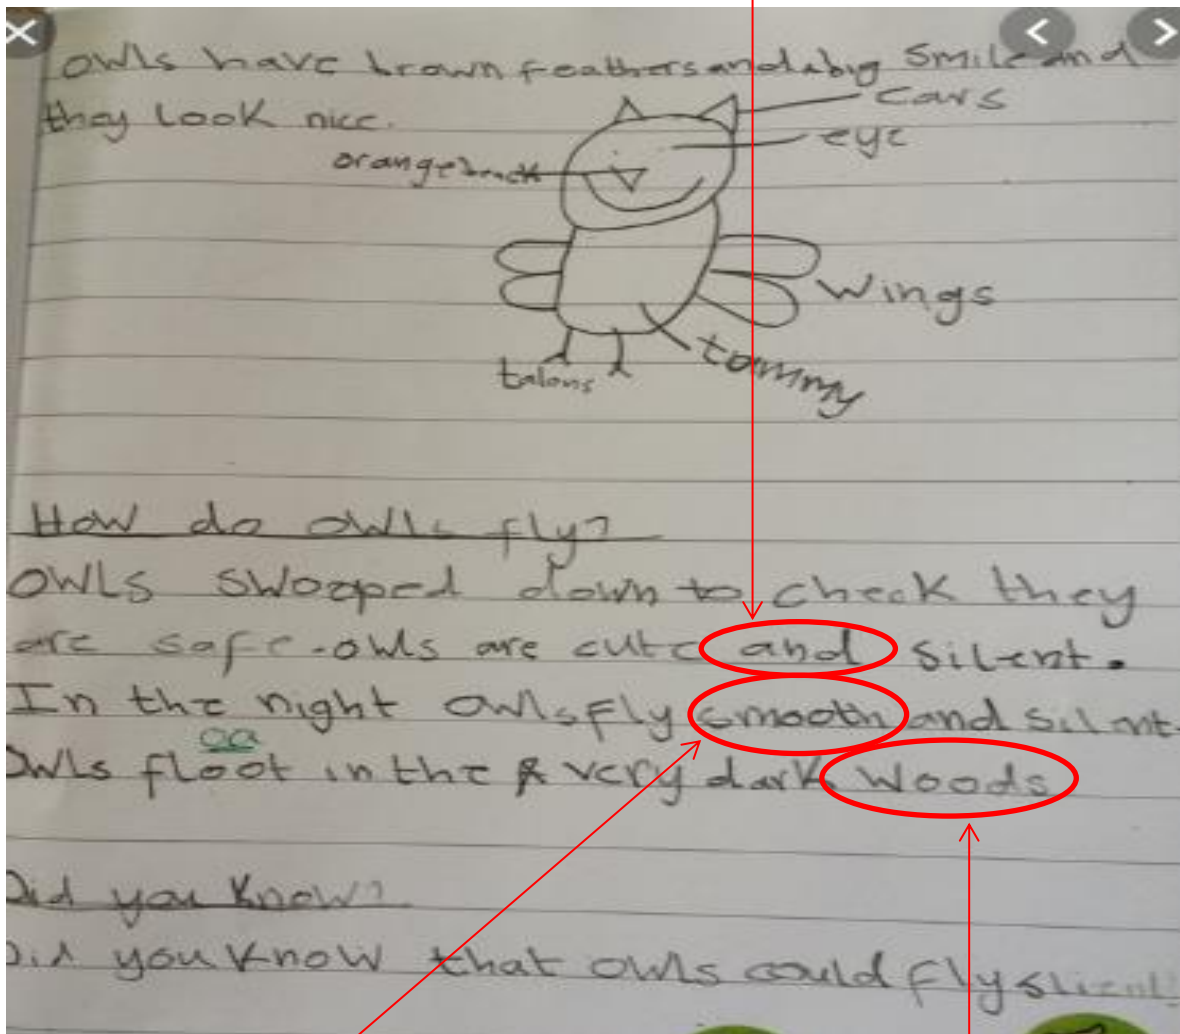 owls have brown feathers and a big smile and
they look nice.
ears
eye
orange
wings
tummy
talons
How do owls fly?
OWLS swooped down to check they
are safe. owls are cute and silent.
In the night owls fly smooth and silent.
oa
Owls floot in the very dark woods
Did you know?
Did you know that owls could fly